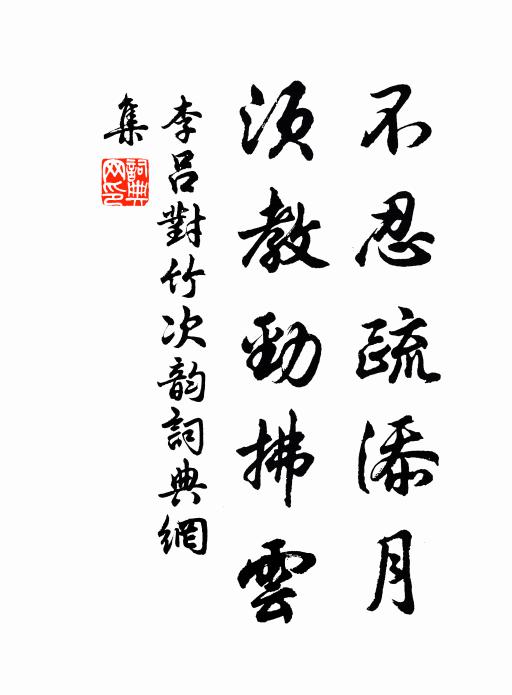 不忍疏添月
須教勁拂雲
李呂對竹次韵詞典網
集
詞典
网印